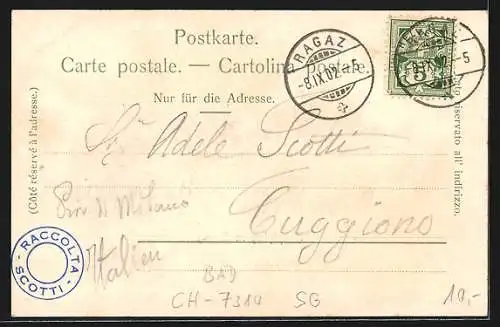 Postkarte.
Carte postale. — Cartolina postale.
Nur für die Adresse.
RAGAZ
-8.IX.02.-5
5
(Côté réservé à l'adresse.)
riservato all' indirizzo.
Adele Scotti
di Milano
Cuggiono
Italien
RACCOLTA
SCOTTI
BAD
CH-7310 SG
10,-